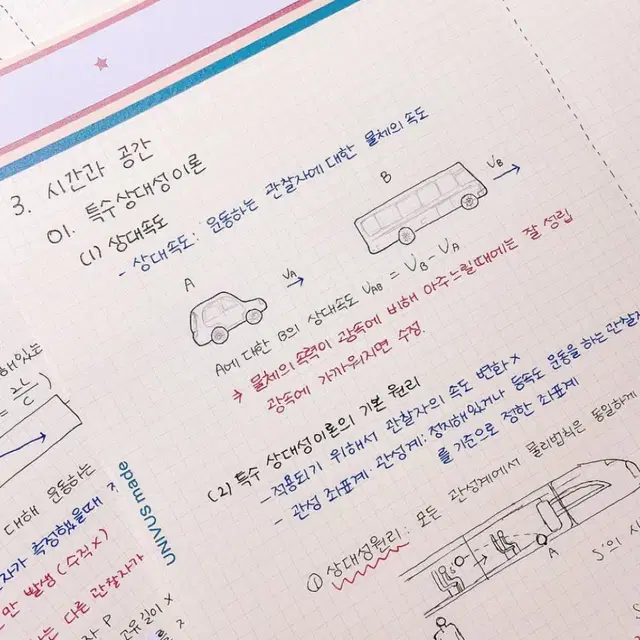 3. 시간과 공간
01. 특수상대성이론
(1) 상대속도
- 상대속도: 운동하는 관찰자에 대한 물체의 속도
A
V_A
B
V_B
A에 대한 B의 상대속도 V_AB = V_B - V_A
→ 물체의 속력이 광속에 비해 아주느릴때에는 잘 성립
광속에 가까워지면 수정.
(2) 특수 상대성이론의 기본 원리
- 적용되기 위해서 관찰자의 속도 변화 X
- 관성 좌표계·관성계: 정지해있거나 등속도 운동을 하는 관찰자
를 기준으로 정한 좌표계
① 상대성원리: 모든 관성계에서 물리법칙은 동일하게
A
S'의
S
해있는
= 2L/C )
대해 운동하는
가 측정했을때 ?
만 발생 (수직X)
는 다른 관찰자가
P
고유길이 X
UNIVUS made